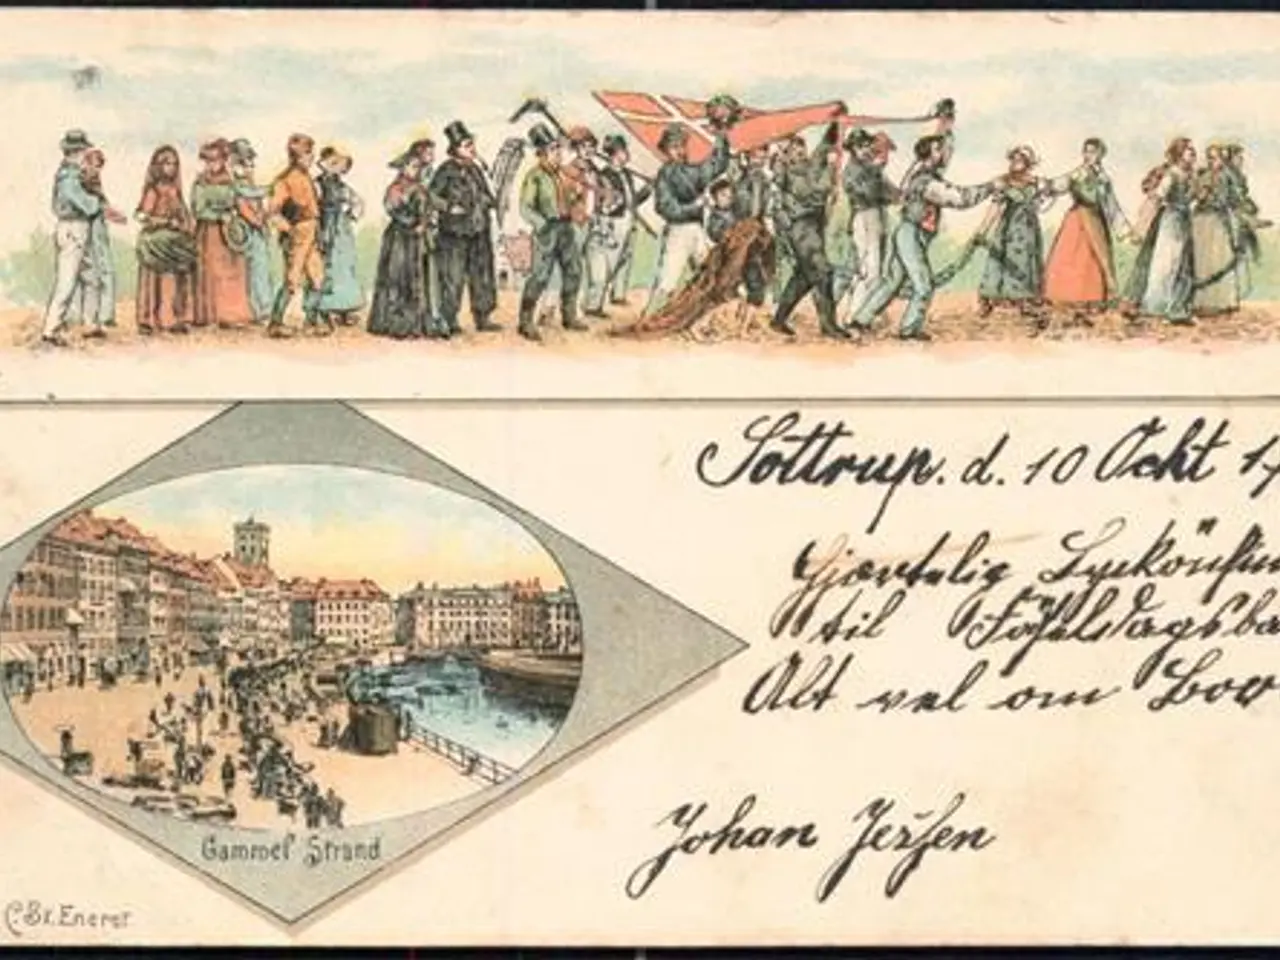 Sottrup. d. 10 Ocht 19
Hjærtelig Lyckönskn
til Födselsdagsba
Alt vel om Bor
Johan Jessen
Gammel Strand
C. St. Eneret